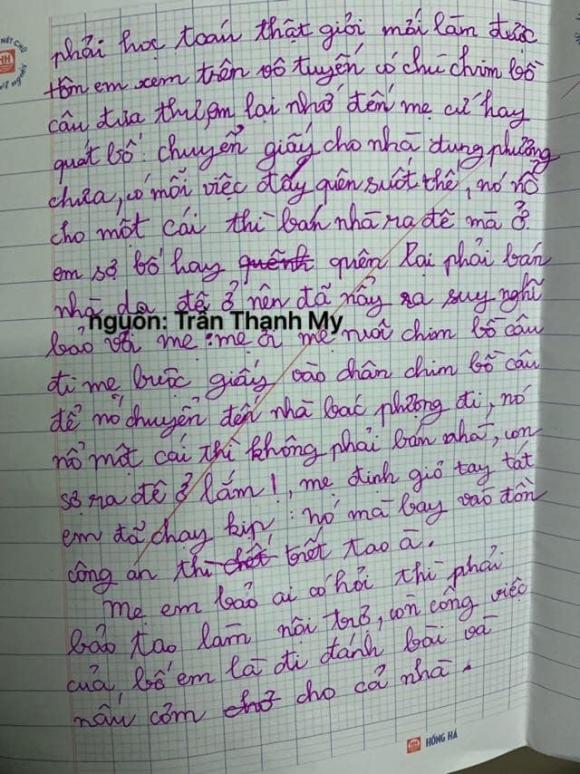 phải học toán thật giỏi mới làm được
hôm em xem trên vô tuyến có chú chim bồ
câu đưa thư, em lại nhớ đến mẹ cứ hay
quát bố: chuyển giấy cho nhà dung phường
chưa, có mỗi việc đấy quên suốt thế, nó nổ
cho một cái thì bán nhà ra đê mà ở.
em sợ bố hay quênh quên lại phải bán
nhà da đê ở nên đã nảy ra suy nghĩ
nguồn: Trần Thanh My
bảo với mẹ: mẹ ơi mẹ nuôi chim bồ câu
đi mẹ buộc giấy vào chân chim bồ câu
để nó chuyển đến nhà bác phường đi, nó
nổ một cái thì không phải bán nhà, con
sợ ra đê ở lắm!, mẹ định giơ tay tát
em đã chạy kịp: nó mà bay vào đồn
công an thì chết tao à.
Mẹ em bảo ai có hỏi thì phải
bảo tao làm nội trợ, còn công việc
của bố em là đi đánh bài và
nấu cơm cho cả nhà.
HH HỒNG HÀ